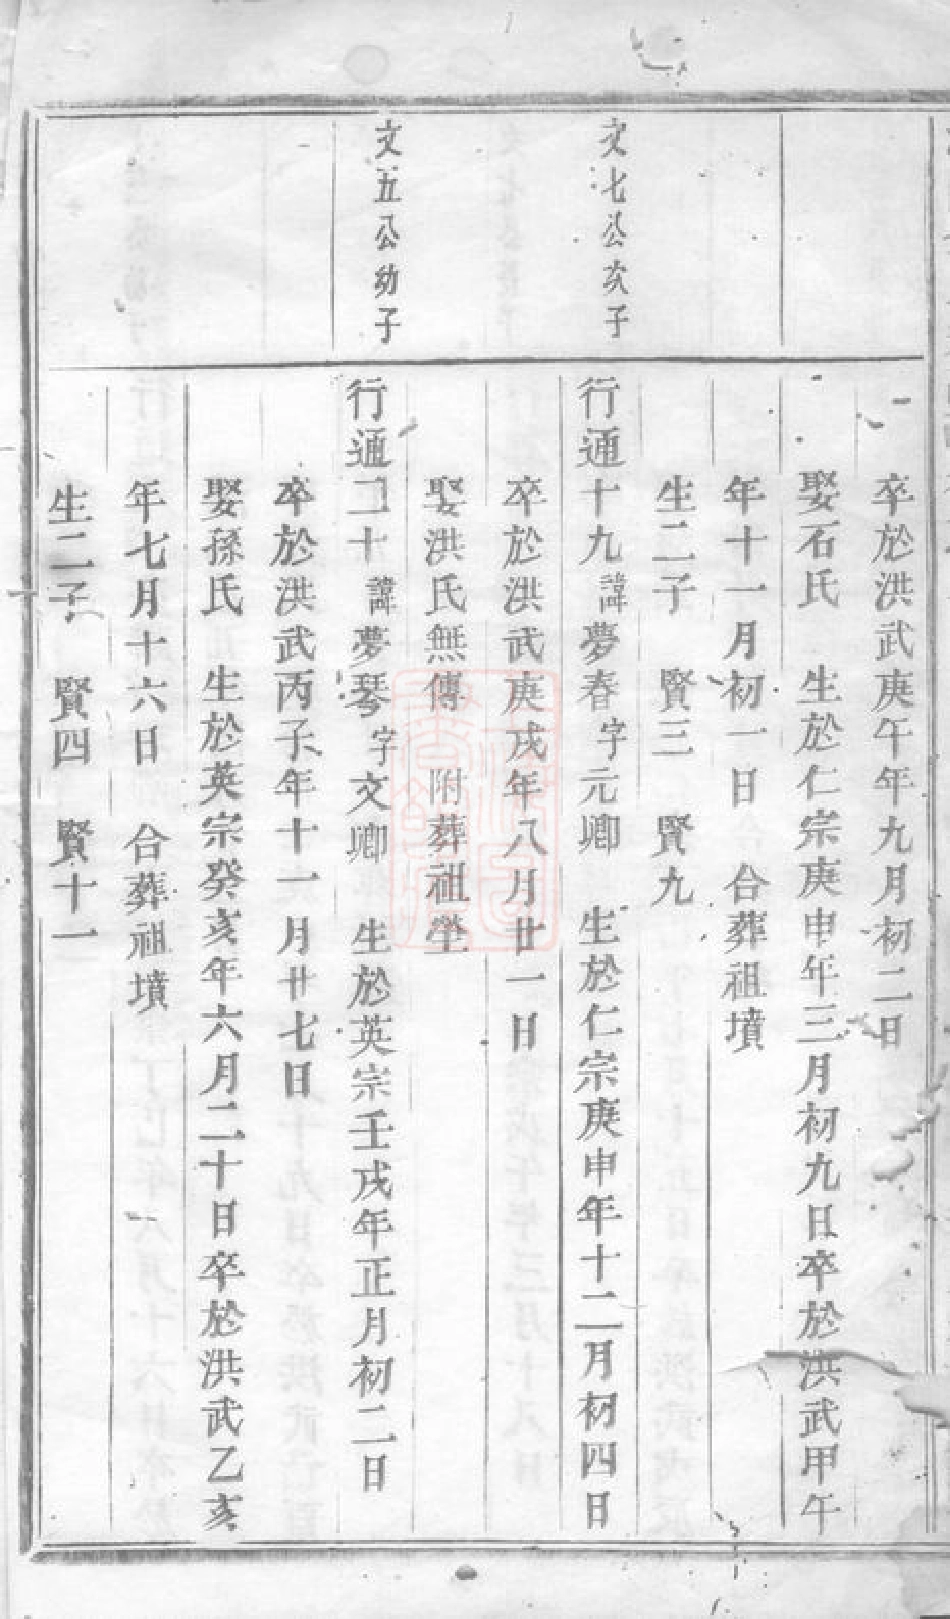 卒於洪武庚午年九月初二日
娶石氏 生於仁宗庚申年三月初九日卒於洪武甲午
年十一月初一日 合葬祖墳
生二子 賢三 賢九
文七公次子
行通十九 諱夢春 字元卿 生於仁宗庚申年十二月初四日
卒於洪武庚戌年八月廿一日
娶洪氏無傳 附葬祖塋
文五公幼子
行通二十 諱夢琴 字文卿 生於英宗壬戌年正月初二日
卒於洪武丙子年十一月廿七日
娶孫氏 生於英宗癸亥年六月二十日卒於洪武乙亥
年七月十六日 合葬祖墳
生二子 賢四 賢十一